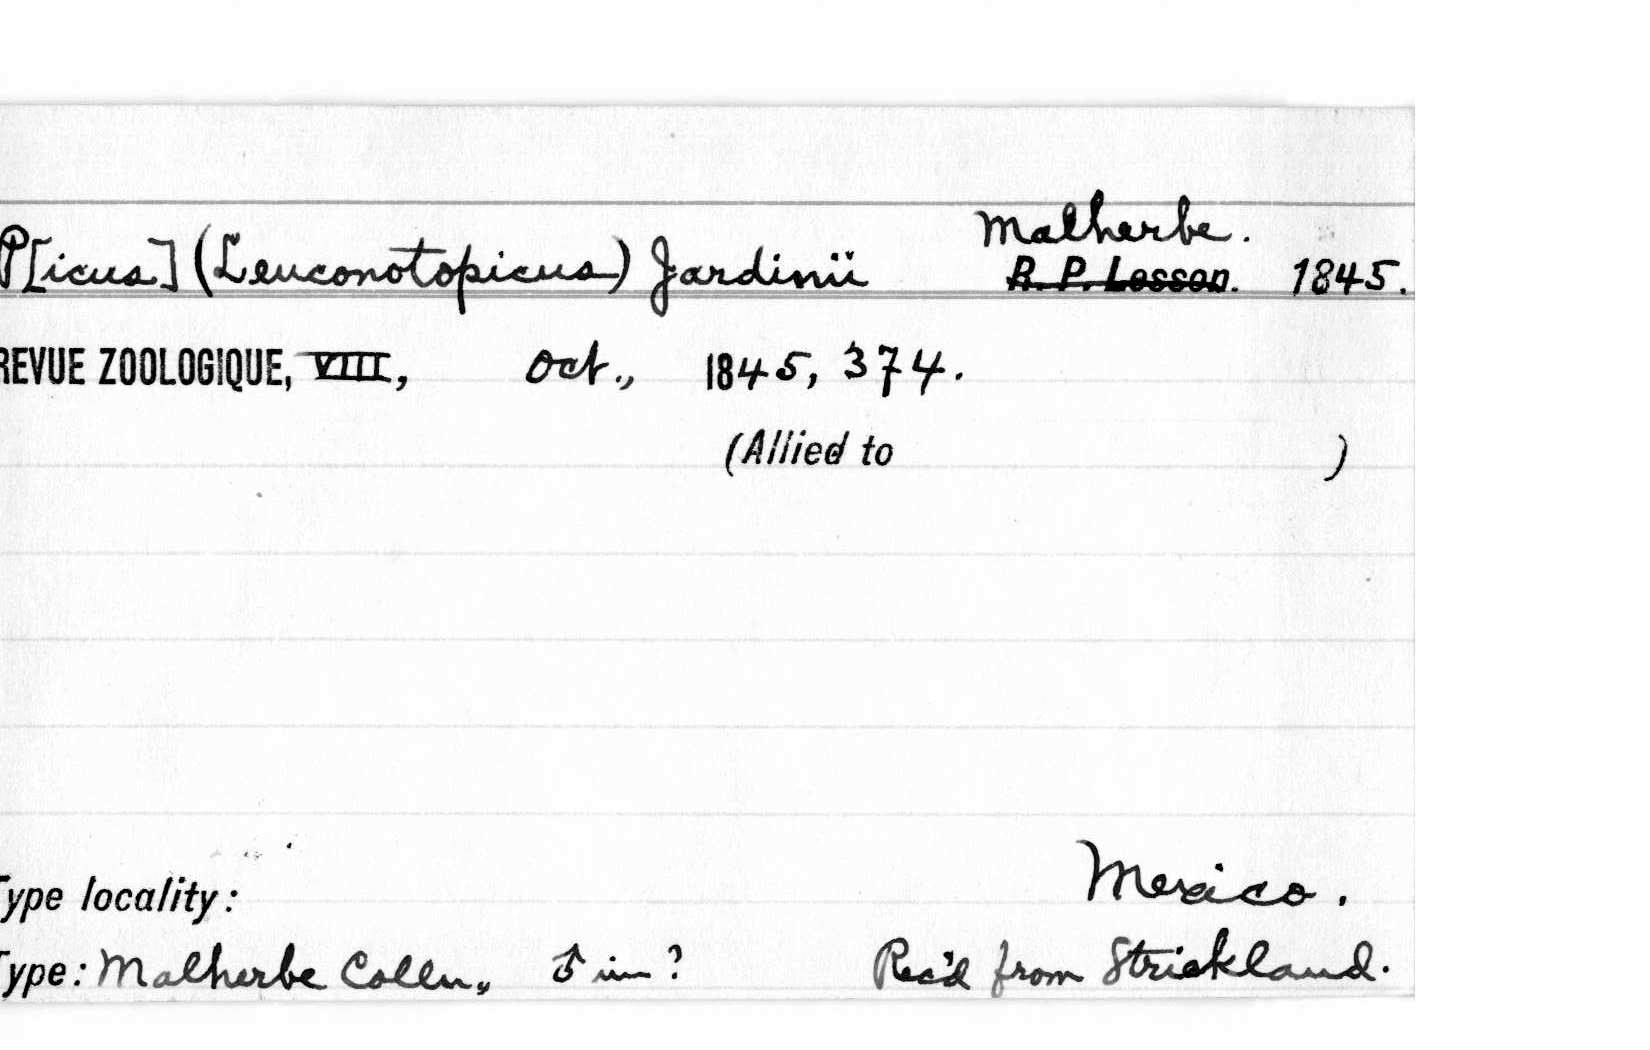 Malherbe.
P[icus] (Leuconotopicus) Jardinii R. P. Lesson. 1845.
REVUE ZOOLOGIQUE, VIII, Oct., 1845, 374.
(Allied to )
Type locality: Mexico.
Type: Malherbe Colln., ♂ im? Rec'd from Strickland.